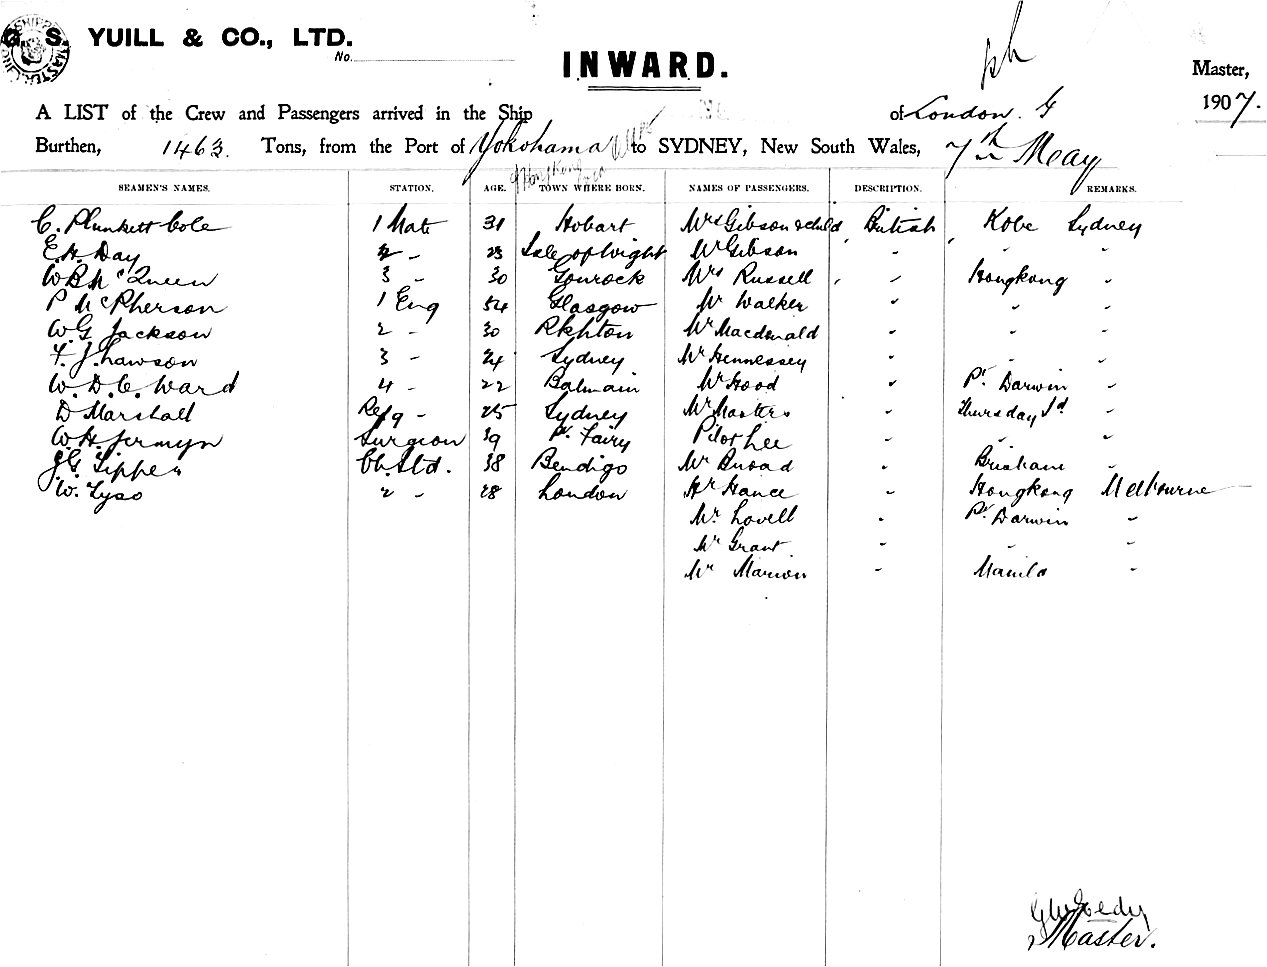 G. S. YUILL & CO., LTD.
No.
INWARD.
Master,
A LIST of the Crew and Passengers arrived in the Ship of London. 1907.
Burthen, 1463. Tons, from the Port of Yokohama to SYDNEY, New South Wales, 7th May
Hongkong
SEAMEN'S NAMES. STATION. AGE. TOWN WHERE BORN. NAMES OF PASSENGERS. DESCRIPTION. REMARKS.
C. Plunkett Cole 1 Mate 31 Hobart Mrs Gibson & child British Kobe Sydney
E. H. Day 2 - 23 Isle of Wight Mr Gibson " " "
W B McQueen 3 - 30 Gourock Mrs Russell " Hongkong "
P McPherson 1 Eng 54 Glasgow Mr Walker " " "
W G Jackson 2 - 30 Mr Macdonald " " "
F. J. Lawson 3 - 24 Sydney Mr Hennessey " " "
W. D. C. Ward 4 - 22 Balmain Mr Hood " Pt Darwin "
D Marshall Refg - 25 Sydney Mr Masters " Thursday Id "
W. H. Jermyn Surgeon 39 Pt Fairy Pilot Lee " " "
J. G. Tippen Ch. Std. 38 Bendigo Mr Broad " Brisbane "
W. Tyso 2 - 28 London Mr Hance " Hongkong Melbourne
Mr Lovell " Pt Darwin "
Mr Grant " " "
Mr Marion " Manila "
Master.